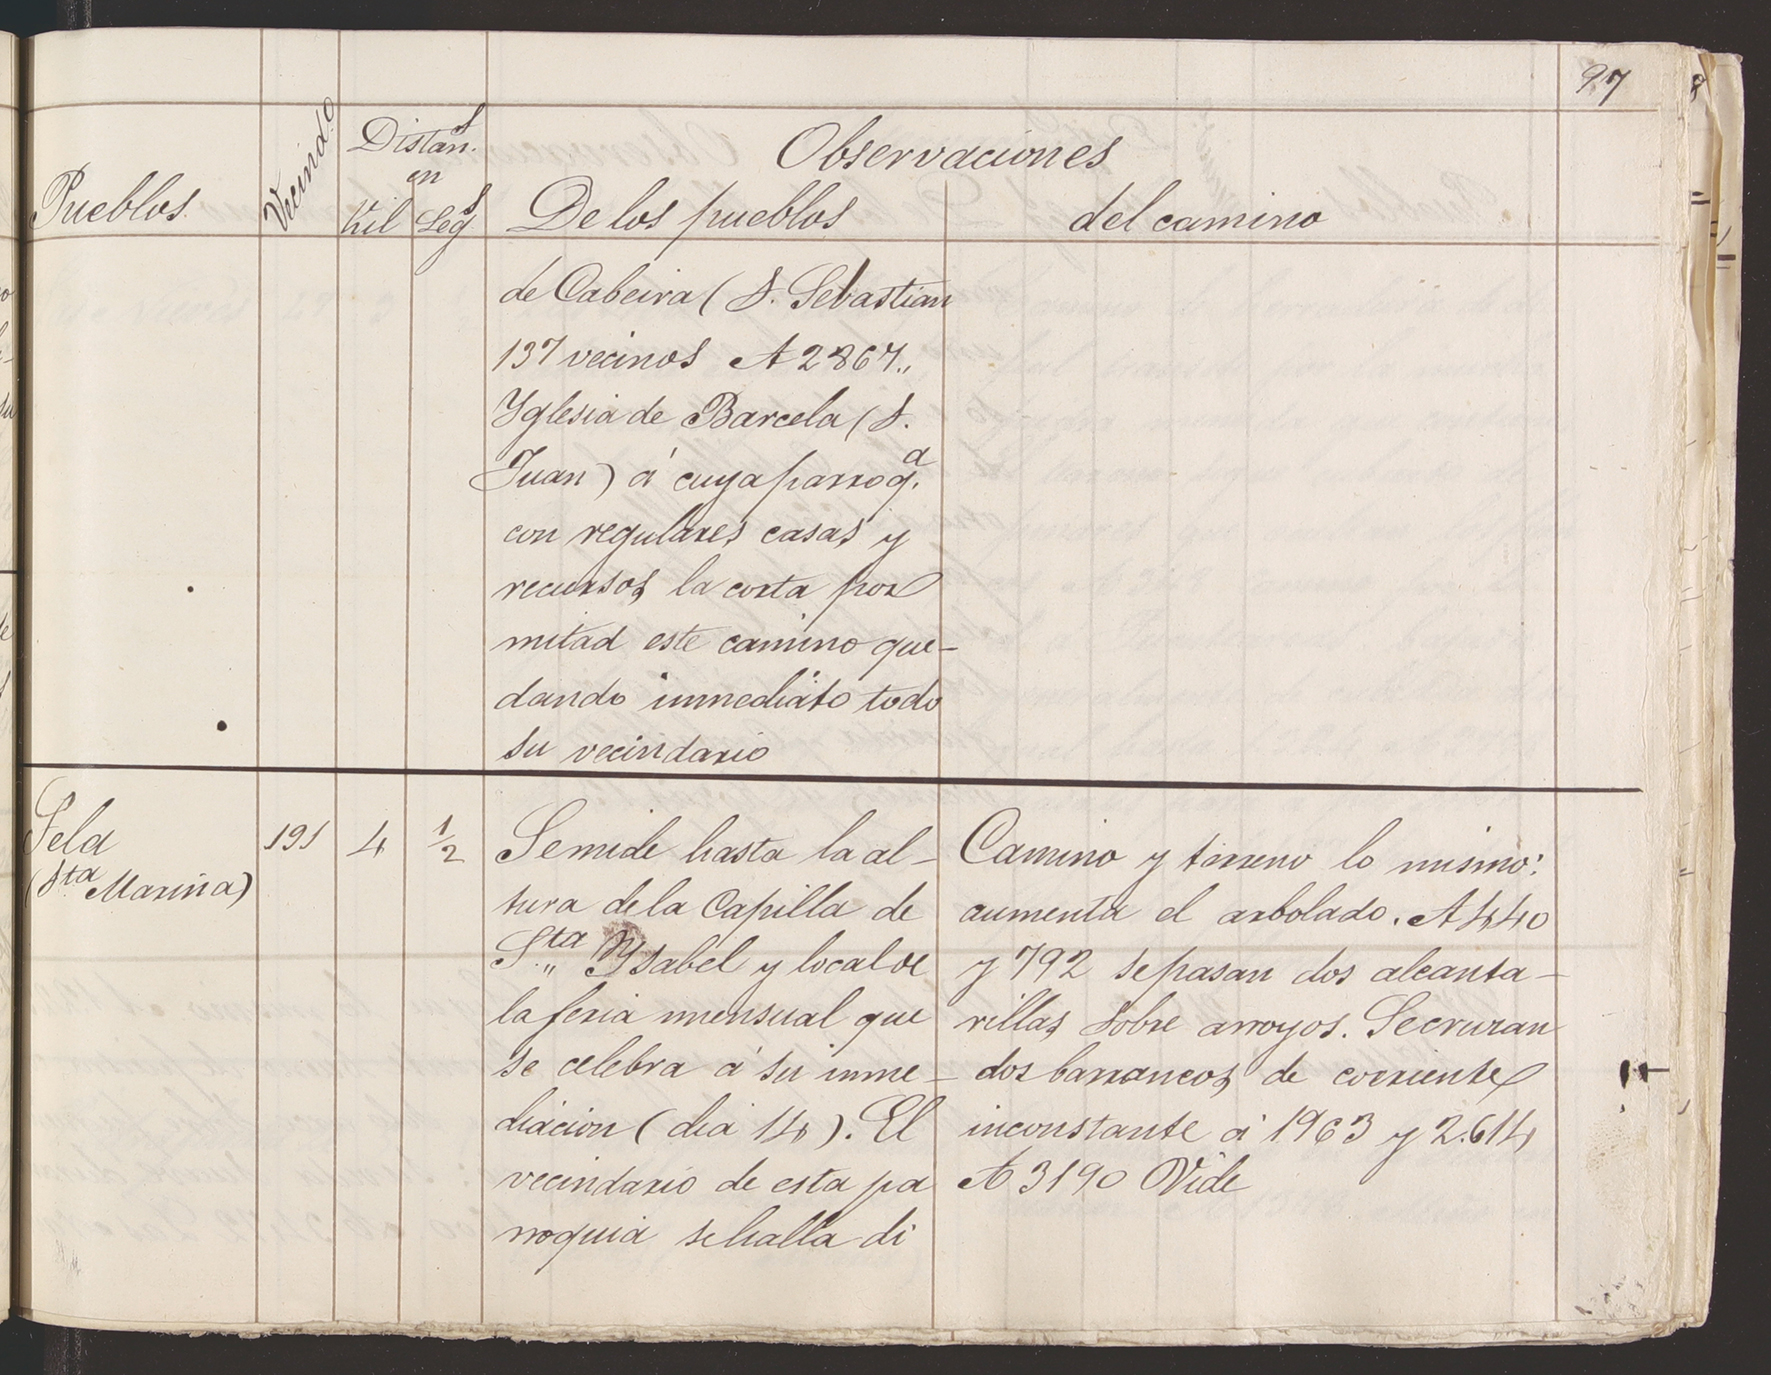 97
Pueblos
Vecind.o
Distan.s
en
Kil
Leg.s
Observaciones
De los pueblos
del camino
de Cabeira (S. Sebastian
137 vecinos A 2867.,
Yglesia de Barcela (S.
Juan) á cuya parroq.a
con regulares casas y
recursos la corta por
mitad este camino que-
dando inmediato todo
su vecindario
Sela
(Sta Marina)
191
4
1/2
Semide hasta la al-
tura de la Capilla de
S.ta Ysabel y local de
la feria mensual que
se celebra á su inme-
diacion (dia 14). El
vecindario de esta pa
rroquia se halla di
Camino y terreno lo mismo:
aumenta el arbolado. A 440
y 792 se pasan dos alcanta-
rillas sobre arroyos. Se cruzan
dos barrancos de corriente
inconstante á 1963 y 2.614
A 3190 Vide